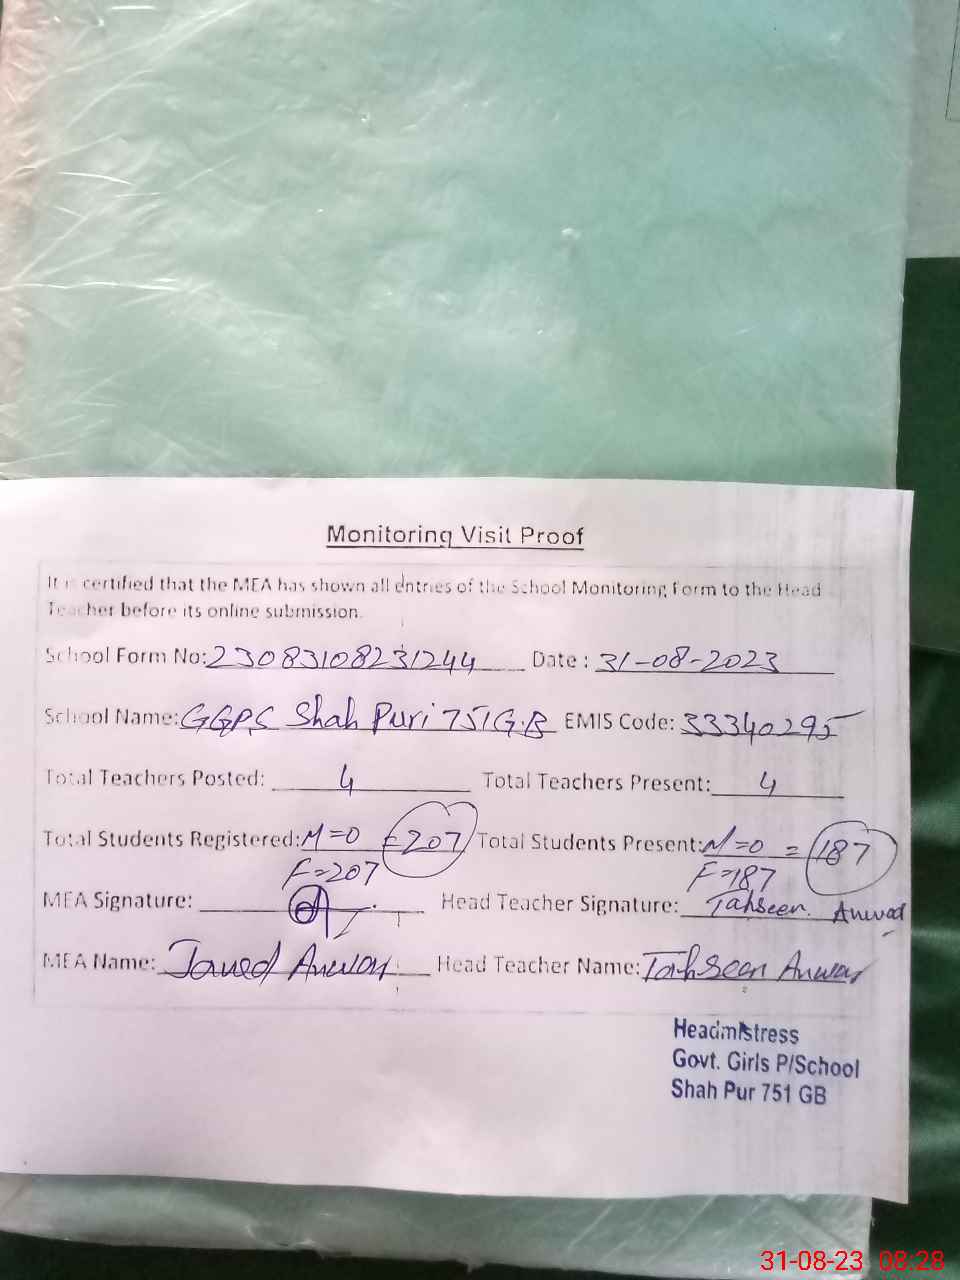 Monitoring Visit Proof
It is certified that the MEA has shown all entries of the School Monitoring Form to the Head
Teacher before its online submission.
School Form No: 23083108231244 Date : 31-08-2023
School Name: GGPS Shah Puri 751 G.B EMIS Code: 33340295
Total Teachers Posted: 4 Total Teachers Present: 4
Total Students Registered: M=0 = 207 Total Students Present: M=0 = 187
F=207 F=187
MEA Signature: Head Teacher Signature: Tahseen Anwar
MEA Name: Javed Anwar Head Teacher Name: Tahseen Anwar
Headmistress
Govt. Girls P/School
Shah Pur 751 GB
31-08-23 08:28